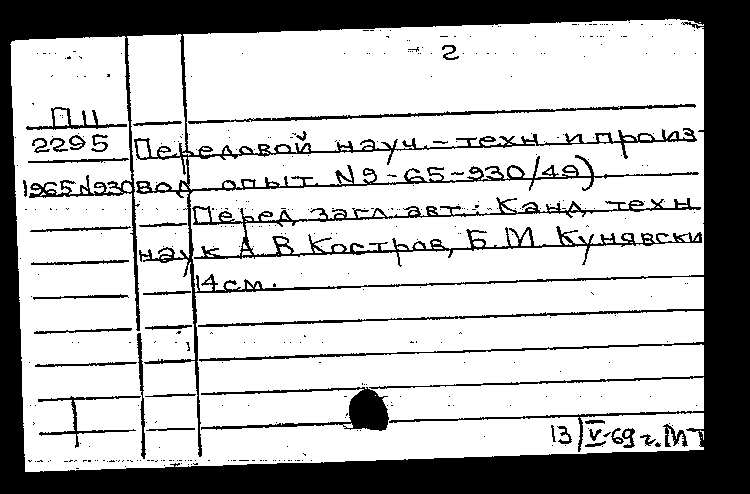 - 2
П II
2295 Передовой науч.-техн. и произ-
1965 N930 вод. опыт. № 9-65-930/49).
Перед загл. авт.: Канд. техн.
наук А. В. Костров, Б. М. Кунявски
14 см.
13/V-69 г. МТ